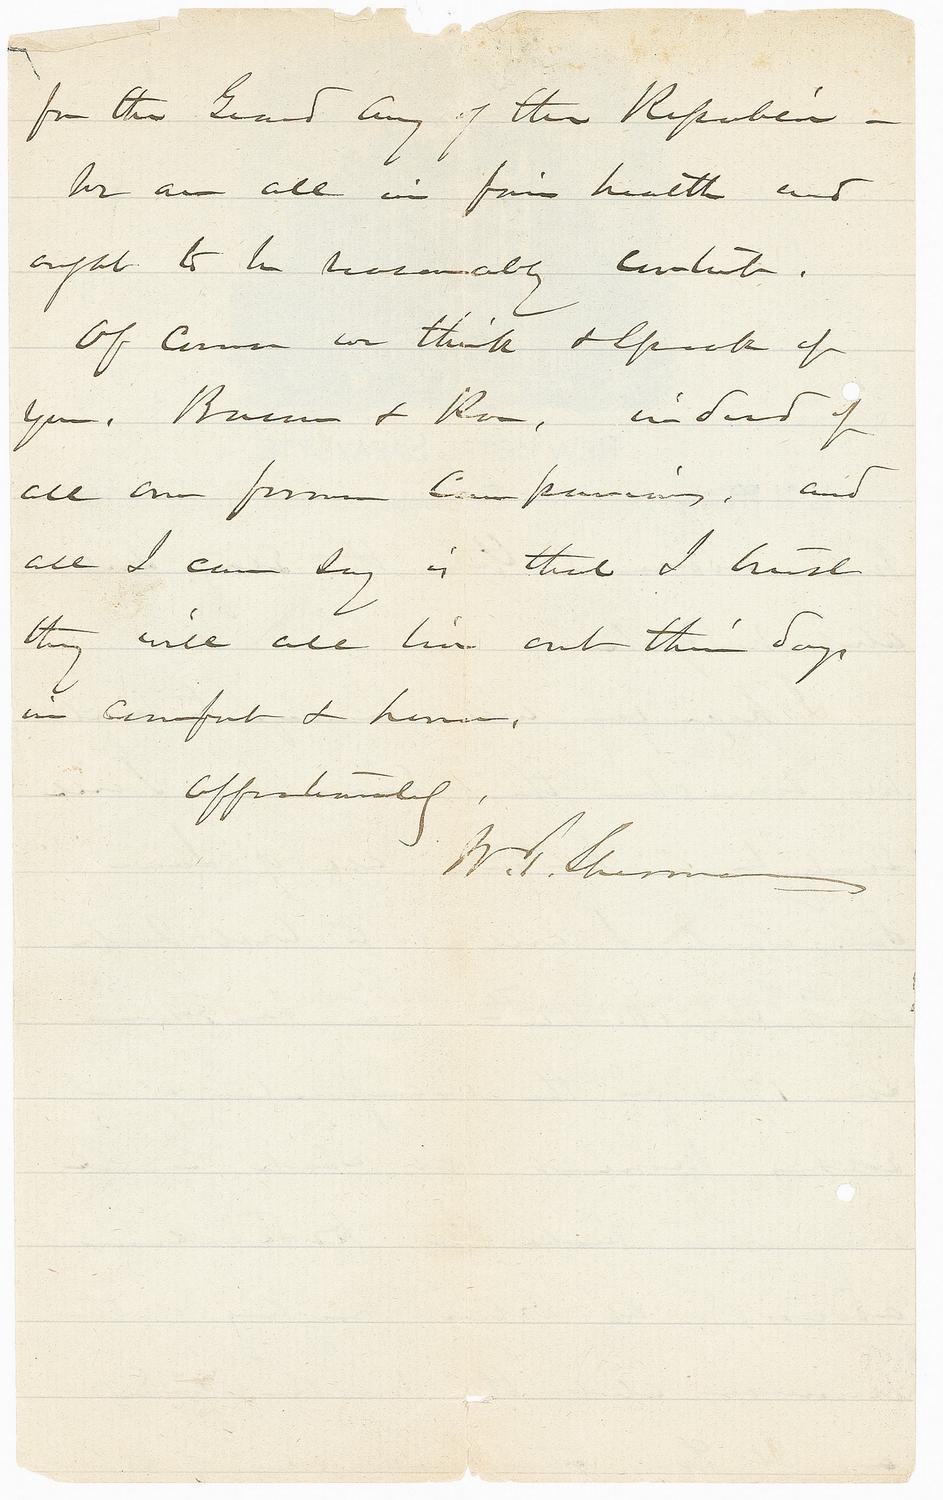 for the Grand Army of the Republic —
We are all in fair health and
ought to be reasonably content.
Of course we think & speak of
you, Bacon & Roe, indeed of
all our former companions, and
all I can say is that I trust
they will all live out their days
in comfort & honor.
Affectionately,
W. T. Sherman